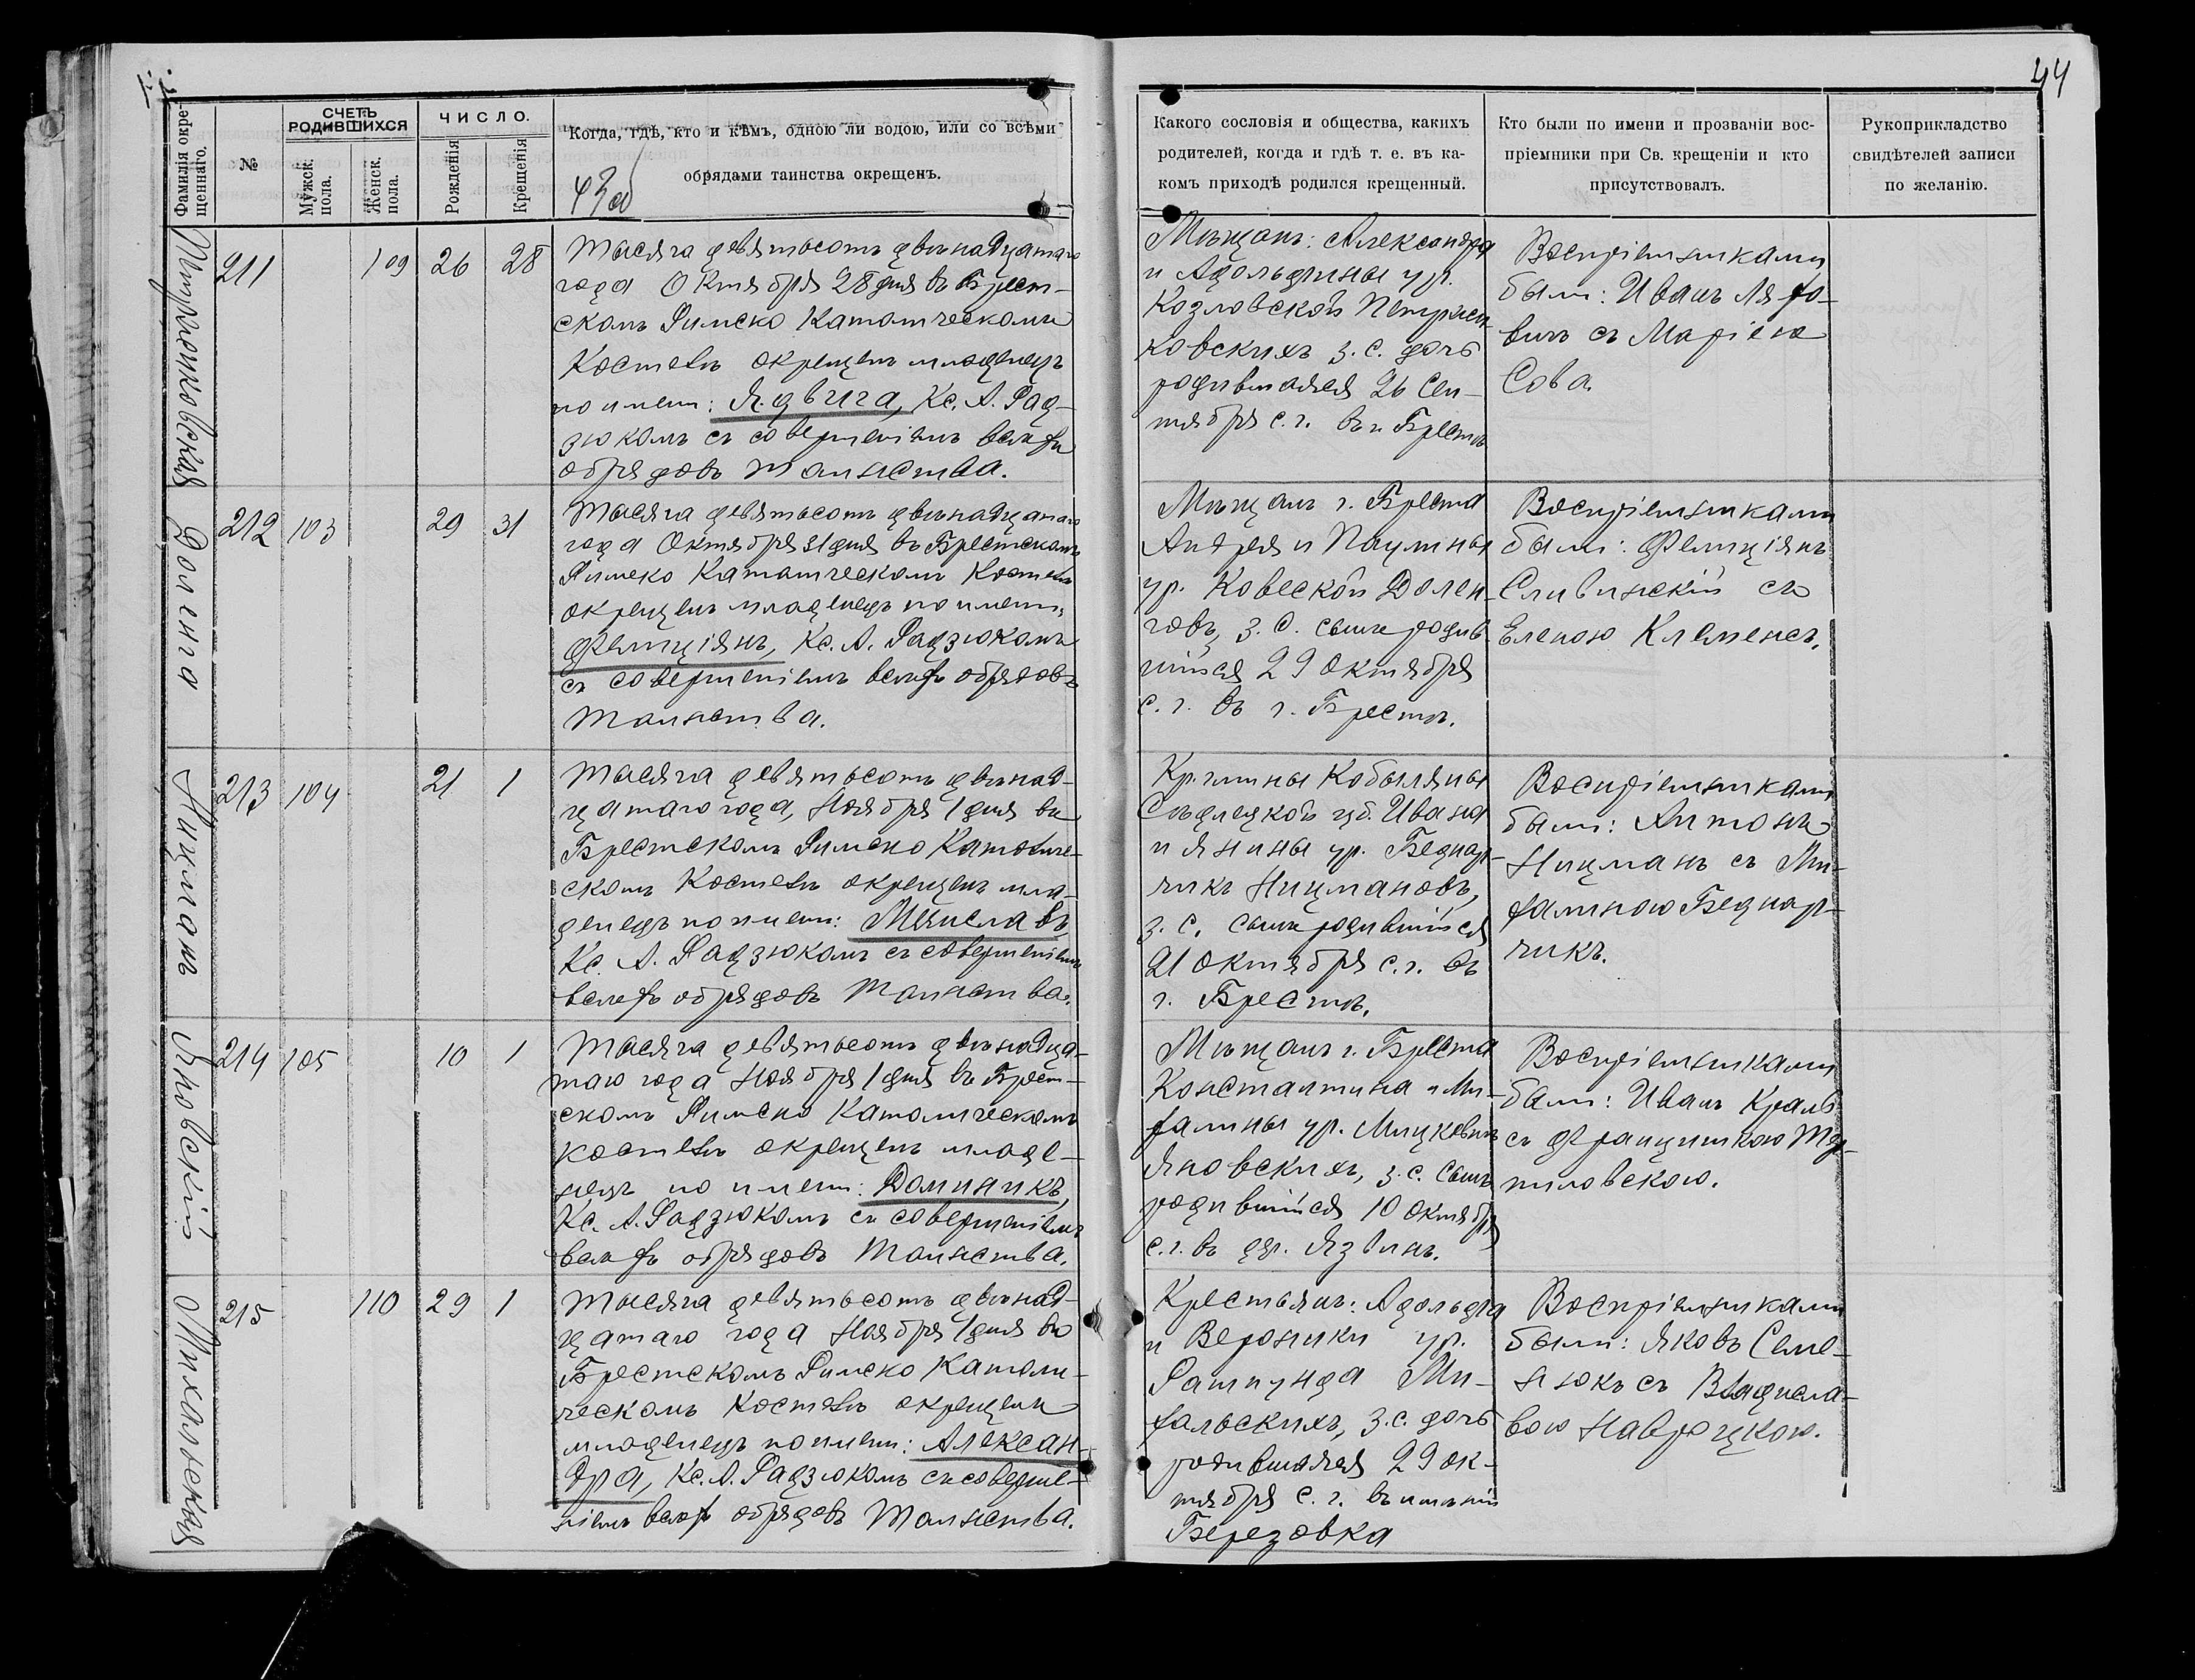 44
Фамилія окре-
щеннаго.
№
СЧЕТЪ
РОДИВШИХСЯ
Мужск.
пола.
Женск.
пола.
ЧИСЛО.
Рожденія
Крещенія
Когда, гдѣ, кто и кѣмъ, одною ли водою, или со всѣми
обрядами таинства окрещенъ.
Какого сословія и общества, какихъ
родителей, когда и гдѣ т. е. въ ка-
комъ приходѣ родился крещенный.
Кто были по имени и прозваніи вос-
пріемники при Св. крещеніи и кто
присутствовалъ.
Рукоприкладство
свидѣтелей записи
по желанію.
Петрыковская
211
109
26
28
Тысяча девятьсотъ двѣнадцатаго
года Октября 28 дня въ Брест-
скомъ Римско Католическомъ
Костелѣ окрещенъ младенецъ
по имени: Ядвига, Кс. А. Рад-
зюкомъ съ совершеніемъ всѣхъ
обрядовъ Таинства.
Мѣщанъ: Александра
и Адольфины ур.
Козловской
ковскихъ з. с. дочь
родившаяся 26 Сен-
тября с. г. въ г. Брестѣ
Воспріемниками
были: Иванъ Ляхо-
вичъ съ Маріею
Сова.
Доленга
212
103
29
31
Тысяча девятьсотъ двѣнадцатаго
года Октября 31 дня въ Брестскомъ
Римско Католическомъ Костелѣ
окрещенъ младенецъ по имени:
Фелиціянъ, Кс. А. Радзюкомъ
съ совершеніемъ всѣхъ обрядовъ
Таинства.
Мѣщанъ г. Бреста
Андрея и Паулины
ур. Ковеской Долен-
говъ, з. с. сынъ родив-
шійся 29 Октября
с. г. въ г. Брестѣ.
Воспріемниками
были: Фелиціянъ
Сливинскій съ
Еленою Клеменсъ.
Ницманъ
213
104
21
1
Тысяча девятьсотъ двѣнад-
цатаго года, Ноября 1 дня въ
Брестскомъ Римско Католиче-
скомъ Костелѣ окрещенъ мла-
денецъ по имени: Мечиславъ,
Кс. А. Радзюкомъ съ совершеніемъ
всѣхъ обрядовъ Таинства.
Кр. гмины Кобыляны
Сѣдлецкой губ. Ивана
и Янины ур. Беднар-
чикъ Ницмановъ,
з. с. сынъ родившійся
21 Октября с. г. въ
г. Брестѣ.
Воспріемниками
были: Антонъ
Ницманъ съ Ми-
халиною Беднар-
чикъ.
Яновскій
214
105
10
1
Тысяча девятьсотъ двѣнадца-
таго года Ноября 1 дня въ Брест-
скомъ Римско Католическомъ
костелѣ окрещенъ младе-
нецъ по имени: Доминикъ,
Кс. А. Радзюкомъ съ совершеніемъ
всѣхъ обрядовъ Таинства.
Мѣщанъ г. Бреста
Константина и Ми-
халины ур. Мицкевичъ
Яновскихъ, з. с. сынъ
родившійся 10 Октября
с. г. въ др. Язвинѣ.
Воспріемниками
были: Иванъ Краль
съ Францишкою
Михальская
215
110
29
1
Тысяча девятьсотъ двѣнад-
цатаго года Ноября 1 дня въ
Брестскомъ Римско Католи-
ческомъ Костелѣ окрещенъ
младенецъ по имени: Алексан-
дра, Кс. А. Радзюкомъ съ соверше-
ніемъ всѣхъ обрядовъ Таинства.
Крестьянъ: Адольфа
и Вероники ур.
Ми-
хальскихъ, з. с. дочь
родившаяся 29 ок-
тября с. г. въ имѣніи
Березовка
Воспріемниками
были: Яковъ Семе-
нюкъ съ Владисла-
вою Навроцкою.